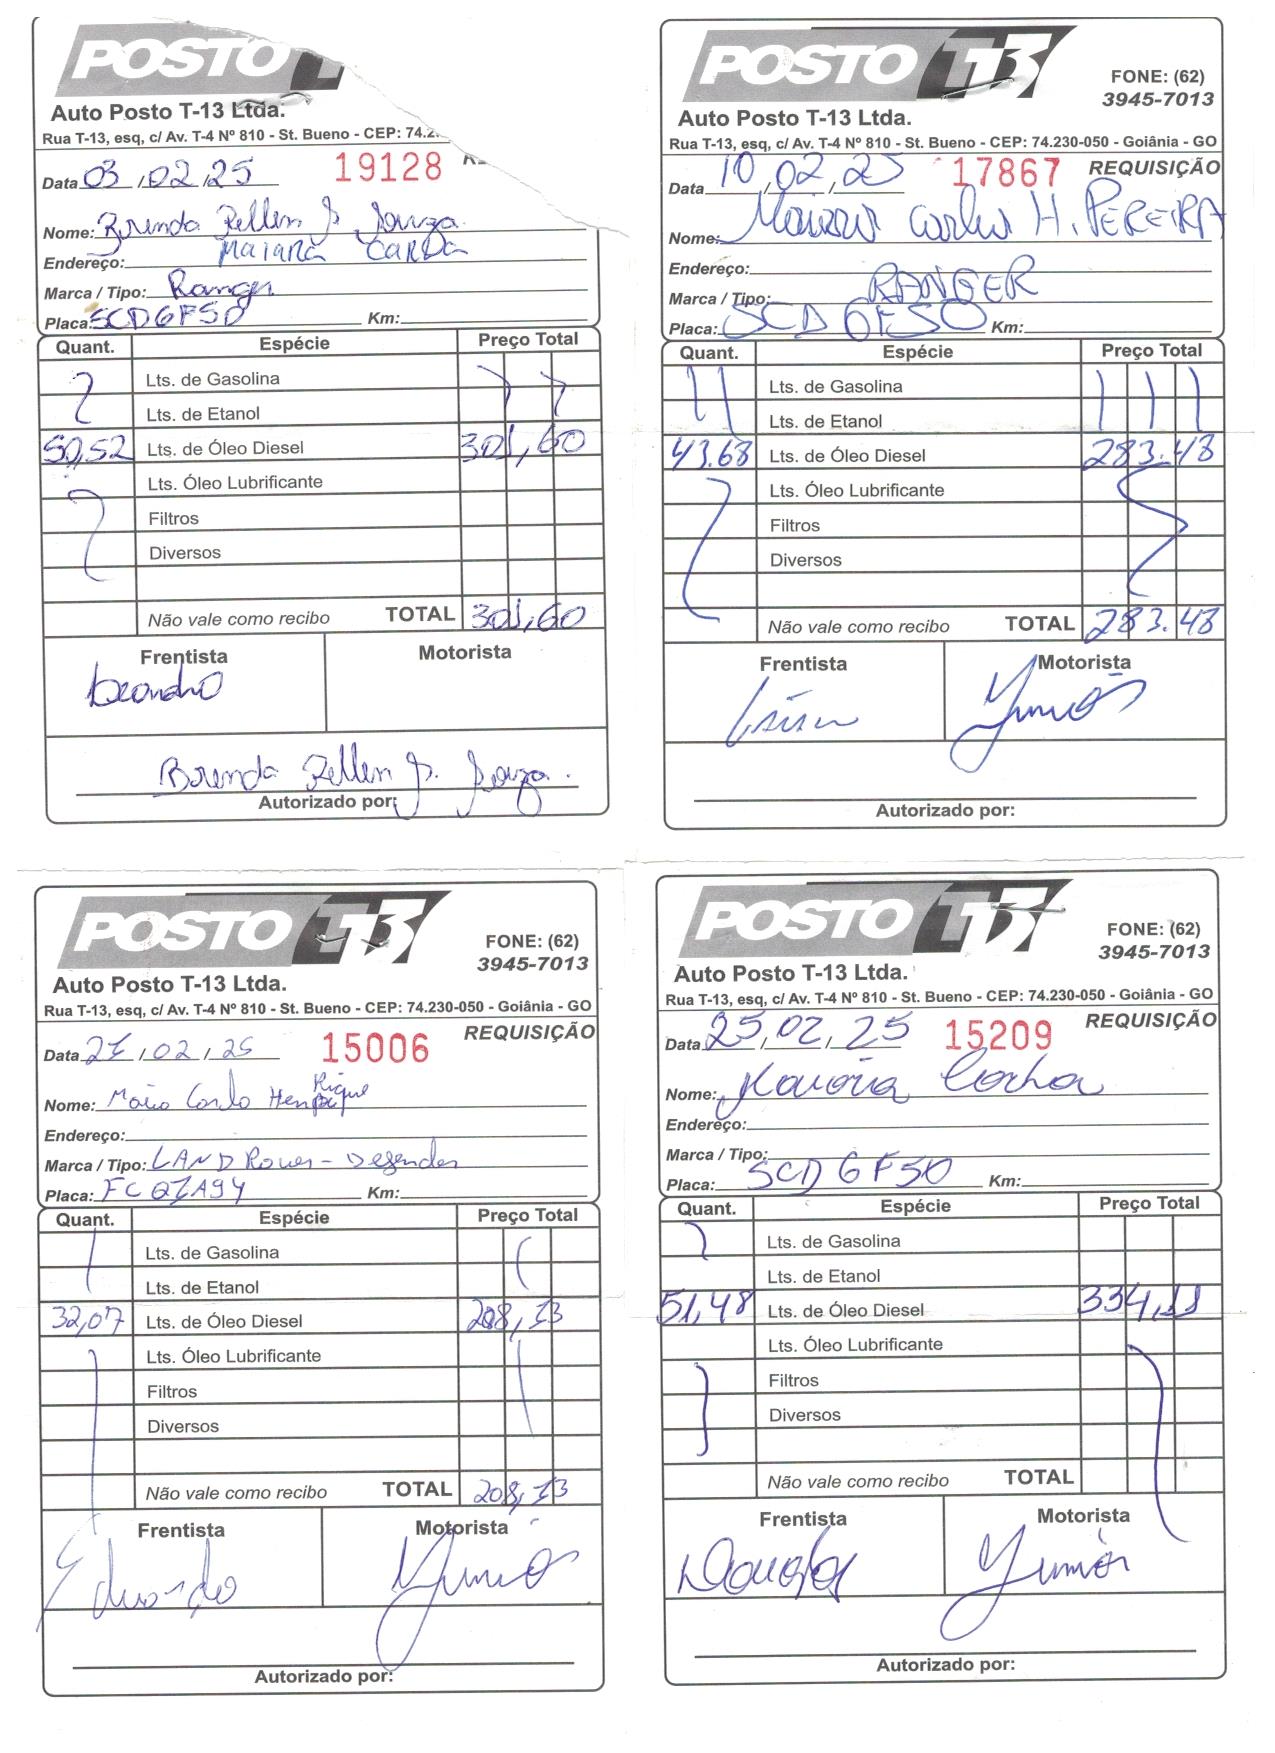 POSTO
Auto Posto T-13 Ltda.
Rua T-13, esq, c/ Av. T-4 Nº 810 - St. Bueno - CEP: 74.2
Data 03 / 02 / 25 19128
Nome: Brenda Kellen S. Souza.
Endereço: MAIARA CARDA
Marca / Tipo: Ranger
Placa: SCD6F50 Km:
Quant. Espécie Preço Total
Lts. de Gasolina
Lts. de Etanol
50,52 Lts. de Óleo Diesel 301,60
Lts. Óleo Lubrificante
Filtros
Diversos
Não vale como recibo TOTAL 301,60
Frentista Motorista
Leandro
Brenda Kellen S. Souza.
Autorizado por:
POSTO T-13
FONE: (62)
3945-7013
Auto Posto T-13 Ltda.
Rua T-13, esq, c/ Av. T-4 Nº 810 - St. Bueno - CEP: 74.230-050 - Goiânia - GO
REQUISIÇÃO
Data 10 / 02 / 25 17867
Nome: Carlos H. PEREIRA
Endereço:
Marca / Tipo: RANGER
Placa: SCD 6F50 Km:
Quant. Espécie Preço Total
Lts. de Gasolina
Lts. de Etanol
43.68 Lts. de Óleo Diesel 283.48
Lts. Óleo Lubrificante
Filtros
Diversos
Não vale como recibo TOTAL 283.48
Frentista Motorista
Junior
Autorizado por:
POSTO T-13
FONE: (62)
3945-7013
Auto Posto T-13 Ltda.
Rua T-13, esq, c/ Av. T-4 Nº 810 - St. Bueno - CEP: 74.230-050 - Goiânia - GO
REQUISIÇÃO
Data / 02 / 25 15006
Rique
Nome: Mário Carlo Hen
Endereço:
Marca / Tipo: LAND Rover - Defender
Placa: FCQ7A94 Km:
Quant. Espécie Preço Total
Lts. de Gasolina
Lts. de Etanol
32,07 Lts. de Óleo Diesel 208,13
Lts. Óleo Lubrificante
Filtros
Diversos
Não vale como recibo TOTAL 208,13
Frentista Motorista
Eduardo Junior
Autorizado por:
POSTO T-13
FONE: (62)
3945-7013
Auto Posto T-13 Ltda.
Rua T-13, esq, c/ Av. T-4 Nº 810 - St. Bueno - CEP: 74.230-050 - Goiânia - GO
REQUISIÇÃO
Data 25 / 02 / 25 15209
Nome:
Endereço:
Marca / Tipo:
Placa: SCD6F50 Km:
Quant. Espécie Preço Total
Lts. de Gasolina
Lts. de Etanol
51,48 Lts. de Óleo Diesel 334,11
Lts. Óleo Lubrificante
Filtros
Diversos
Não vale como recibo TOTAL
Frentista Motorista
Junior
Autorizado por: